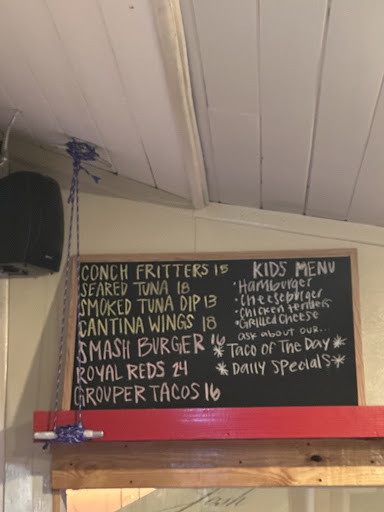 CONCH FRITTERS 15
SEARED TUNA 18
SMOKED TUNA DIP 13
CANTINA WINGS 18
SMASH BURGER 16
ROYAL REDS 24
GROUPER TACOS 16
KIDS MENU
• Hamburger
• cheeseburger
• chicken tenders
• Grilled Cheese
ask about our...
* Taco of The Day *
* Daily Specials *
Josh